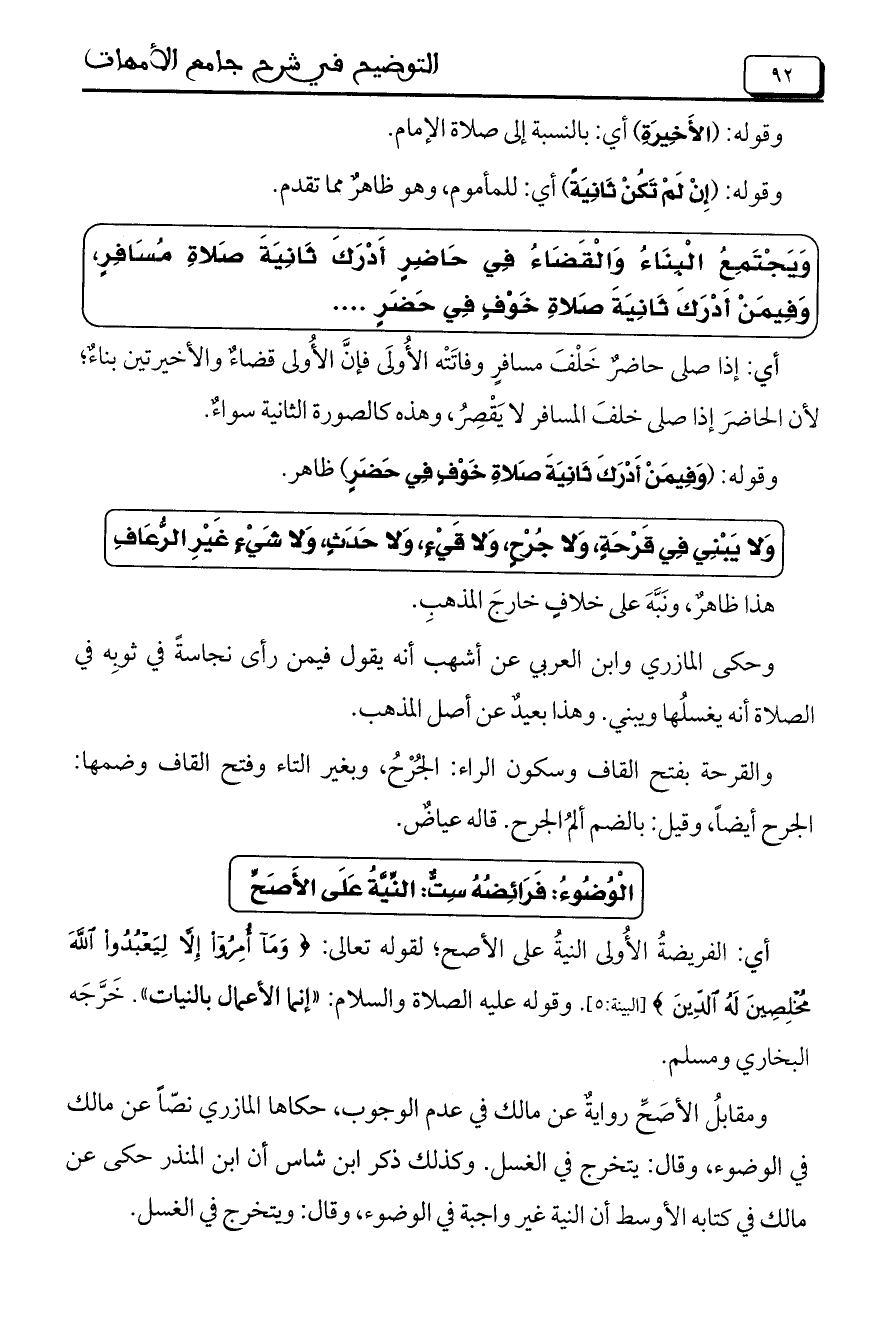 ٩٢
التوضيح في شرح جامع الأمهات
وقوله: (الأَخِيرَةِ) أي: بالنسبة إلى صلاة الإمام.
وقوله: (إِنْ لَمْ تَكُنْ ثَانِيَةً) أي: للمأموم، وهو ظاهرٌ مما تقدم.
وَيَجْتَمِعُ الْبِنَاءُ وَالْقَضَاءُ فِي حَاضِرٍ أَدْرَكَ ثَانِيَةَ صَلاةِ مُسَافِرٍ،
وَفِيمَنْ أَدْرَكَ ثَانِيَةَ صَلاةِ خَوْفٍ فِي حَضَرٍ ....
أي: إذا صلى حاضرٌ خَلْفَ مسافرٍ وفاتَتْه الأُولَى فإنَّ الأُولى قضاءٌ والأخيرتين بناءٌ؛
لأن الحاضرَ إذا صلى خلفَ المسافر لا يَقْصِرُ، وهذه كالصورة الثانية سواءٌ.
وقوله: (وَفِيمَنْ أَدْرَكَ ثَانِيَةَ صَلاةِ خَوْفٍ فِي حَضَرٍ) ظاهر.
وَلا يَبْنِي فِي قَرْحَةٍ، وَلا جُرْحٍ، وَلا قَيْءٍ، وَلا حَدَثٍ، وَلا شَيْءٍ غَيْرِ الرُّعَافِ
هذا ظاهرٌ، ونَبَّهَ على خلافٍ خارجَ المذهبِ.
وحكى المازري وابن العربي عن أشهب أنه يقول فيمن رأى نجاسةً في ثوبِه في
الصلاة أنه يغسلُها ويبني. وهذا بعيدٌ عن أصل المذهب.
والقرحة بفتح القاف وسكون الراء: الجُرْحُ، وبغير التاء وفتح القاف وضمها:
الجرح أيضاً، وقيل: بالضم ألمُ الجرح. قاله عياضٌ.
الْوُضُوءُ: فَرَائِضُهُ سِتٌّ: النِّيَّةُ عَلَى الأَصَحِّ
أي: الفريضةُ الأُولى النيةُ على الأصح؛ لقوله تعالى: ﴿ وَمَآ أُمِرُوٓاْ إِلَّا لِيَعْبُدُواْ ٱللَّهَ
مُخْلِصِينَ لَهُ ٱلدِّينَ ﴾ [البينة:٥]. وقوله عليه الصلاة والسلام: «إنما الأعمال بالنيات». خَرَّجَه
البخاري ومسلم.
ومقابلُ الأصَحِّ روايةٌ عن مالك في عدم الوجوب، حكاها المازري نصّاً عن مالك
في الوضوء، وقال: يتخرج في الغسل. وكذلك ذكر ابن شاس أن ابن المنذر حكى عن
مالك في كتابه الأوسط أن النية غير واجبة في الوضوء، وقال: ويتخرج في الغسل.